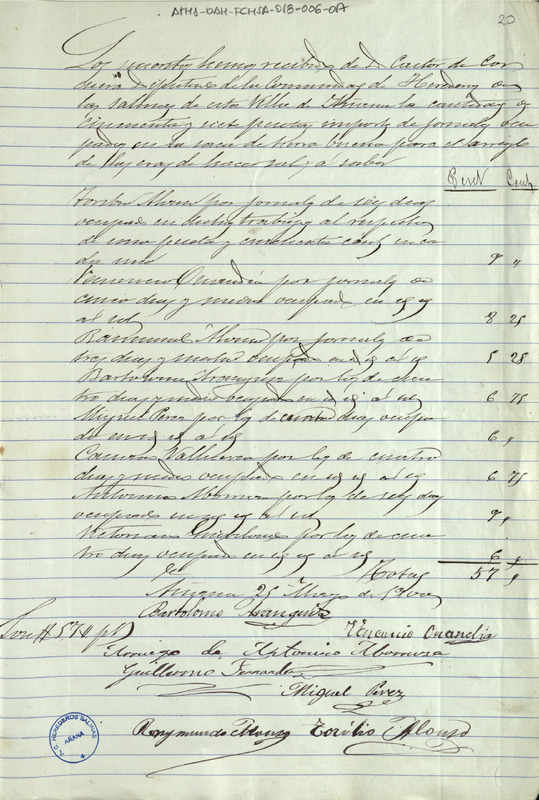 ATHA-DAH-FCHSA-018-006-07
20
Los suscritos hemos recibido de D. Castor de Cor
cuera Diputado de la Comunidad de Herederos de
las salinas de esta Villa de Añana la cantidad de
cincuenta y siete pesetas importe de jornales ocu
pados en la saca de tierra buena para el arreglo
de las eras de hacer sal, á saber
Pesets Cents
Toribio Alonso por jornales de seis dias
ocupado en dicho trabajo al respecto
de una peseta y cincuenta cents en ca
da uno 9 "
Venancio Onandia por jornales de
cinco dias y medio ocupado en id id
á id 8 25
Raimundo Alonso por jornales de
tres dias y medio ocupado en id id á id 5 25
Bartolome Aranguiz por los de cua
tro dias y medio ocupado en id id á id 6 75
Miguel Perez por los de cuatro dias ocupa
do en id id á id 6 "
por los de cuatro
dias y medio ocupado en id id á id 6 75
Antonino Abornoz por los de seis dias
ocupado en id id á id 9 "
por los de cua
tro dias ocupado en id id á id 6 "
Total 57 "
Añana 25 Mayo de
Bartolome Aranguiz
Son # 57 " pts
Venancio Onandia
A ruego de Antonino Abornoz
Guillermo Fernandez
Miguel Perez
Raymundo Alonso Toribio Alonso
HEREDEROS SALINAS
AÑANA